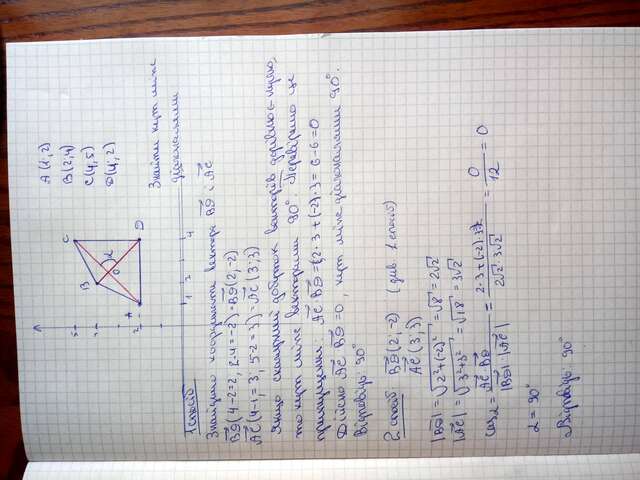 A(1; 2)
B(2; 4)
C(4; 5)
D(4; 2)
Знайти кут між
діагоналями
5
4
2
1 2 4
A
B
C
D
O
α
1 спосіб
Знайдемо координати вектора BD і AC
BD(4-2=2, 2-4=-2) = BD(2, -2)
AC(4-1=3, 5-2=3) = AC(3; 3)
Якщо скалярний добуток векторів дорівнює нулю,
то кут між векторами 90°. Перевіримо це
припущення: AC BD = (2·3+(-2)·3 = 6-6=0
Дійсно AC BD = 0, кут між діагоналями 90°.
Відповідь: 90°
2 спосіб BD(2; -2) (див. 1 спосіб)
AC(3; 3)
|BD| = √2²+(-2)² = √8 = 2√2
|AC| = √3²+3² = √18 = 3√2
cos α = AC BD / |BD| |AC| = 2·3+(-2)·3 / 2√2·3√2 = 0/12 = 0
α = 90°
Відповідь: 90°